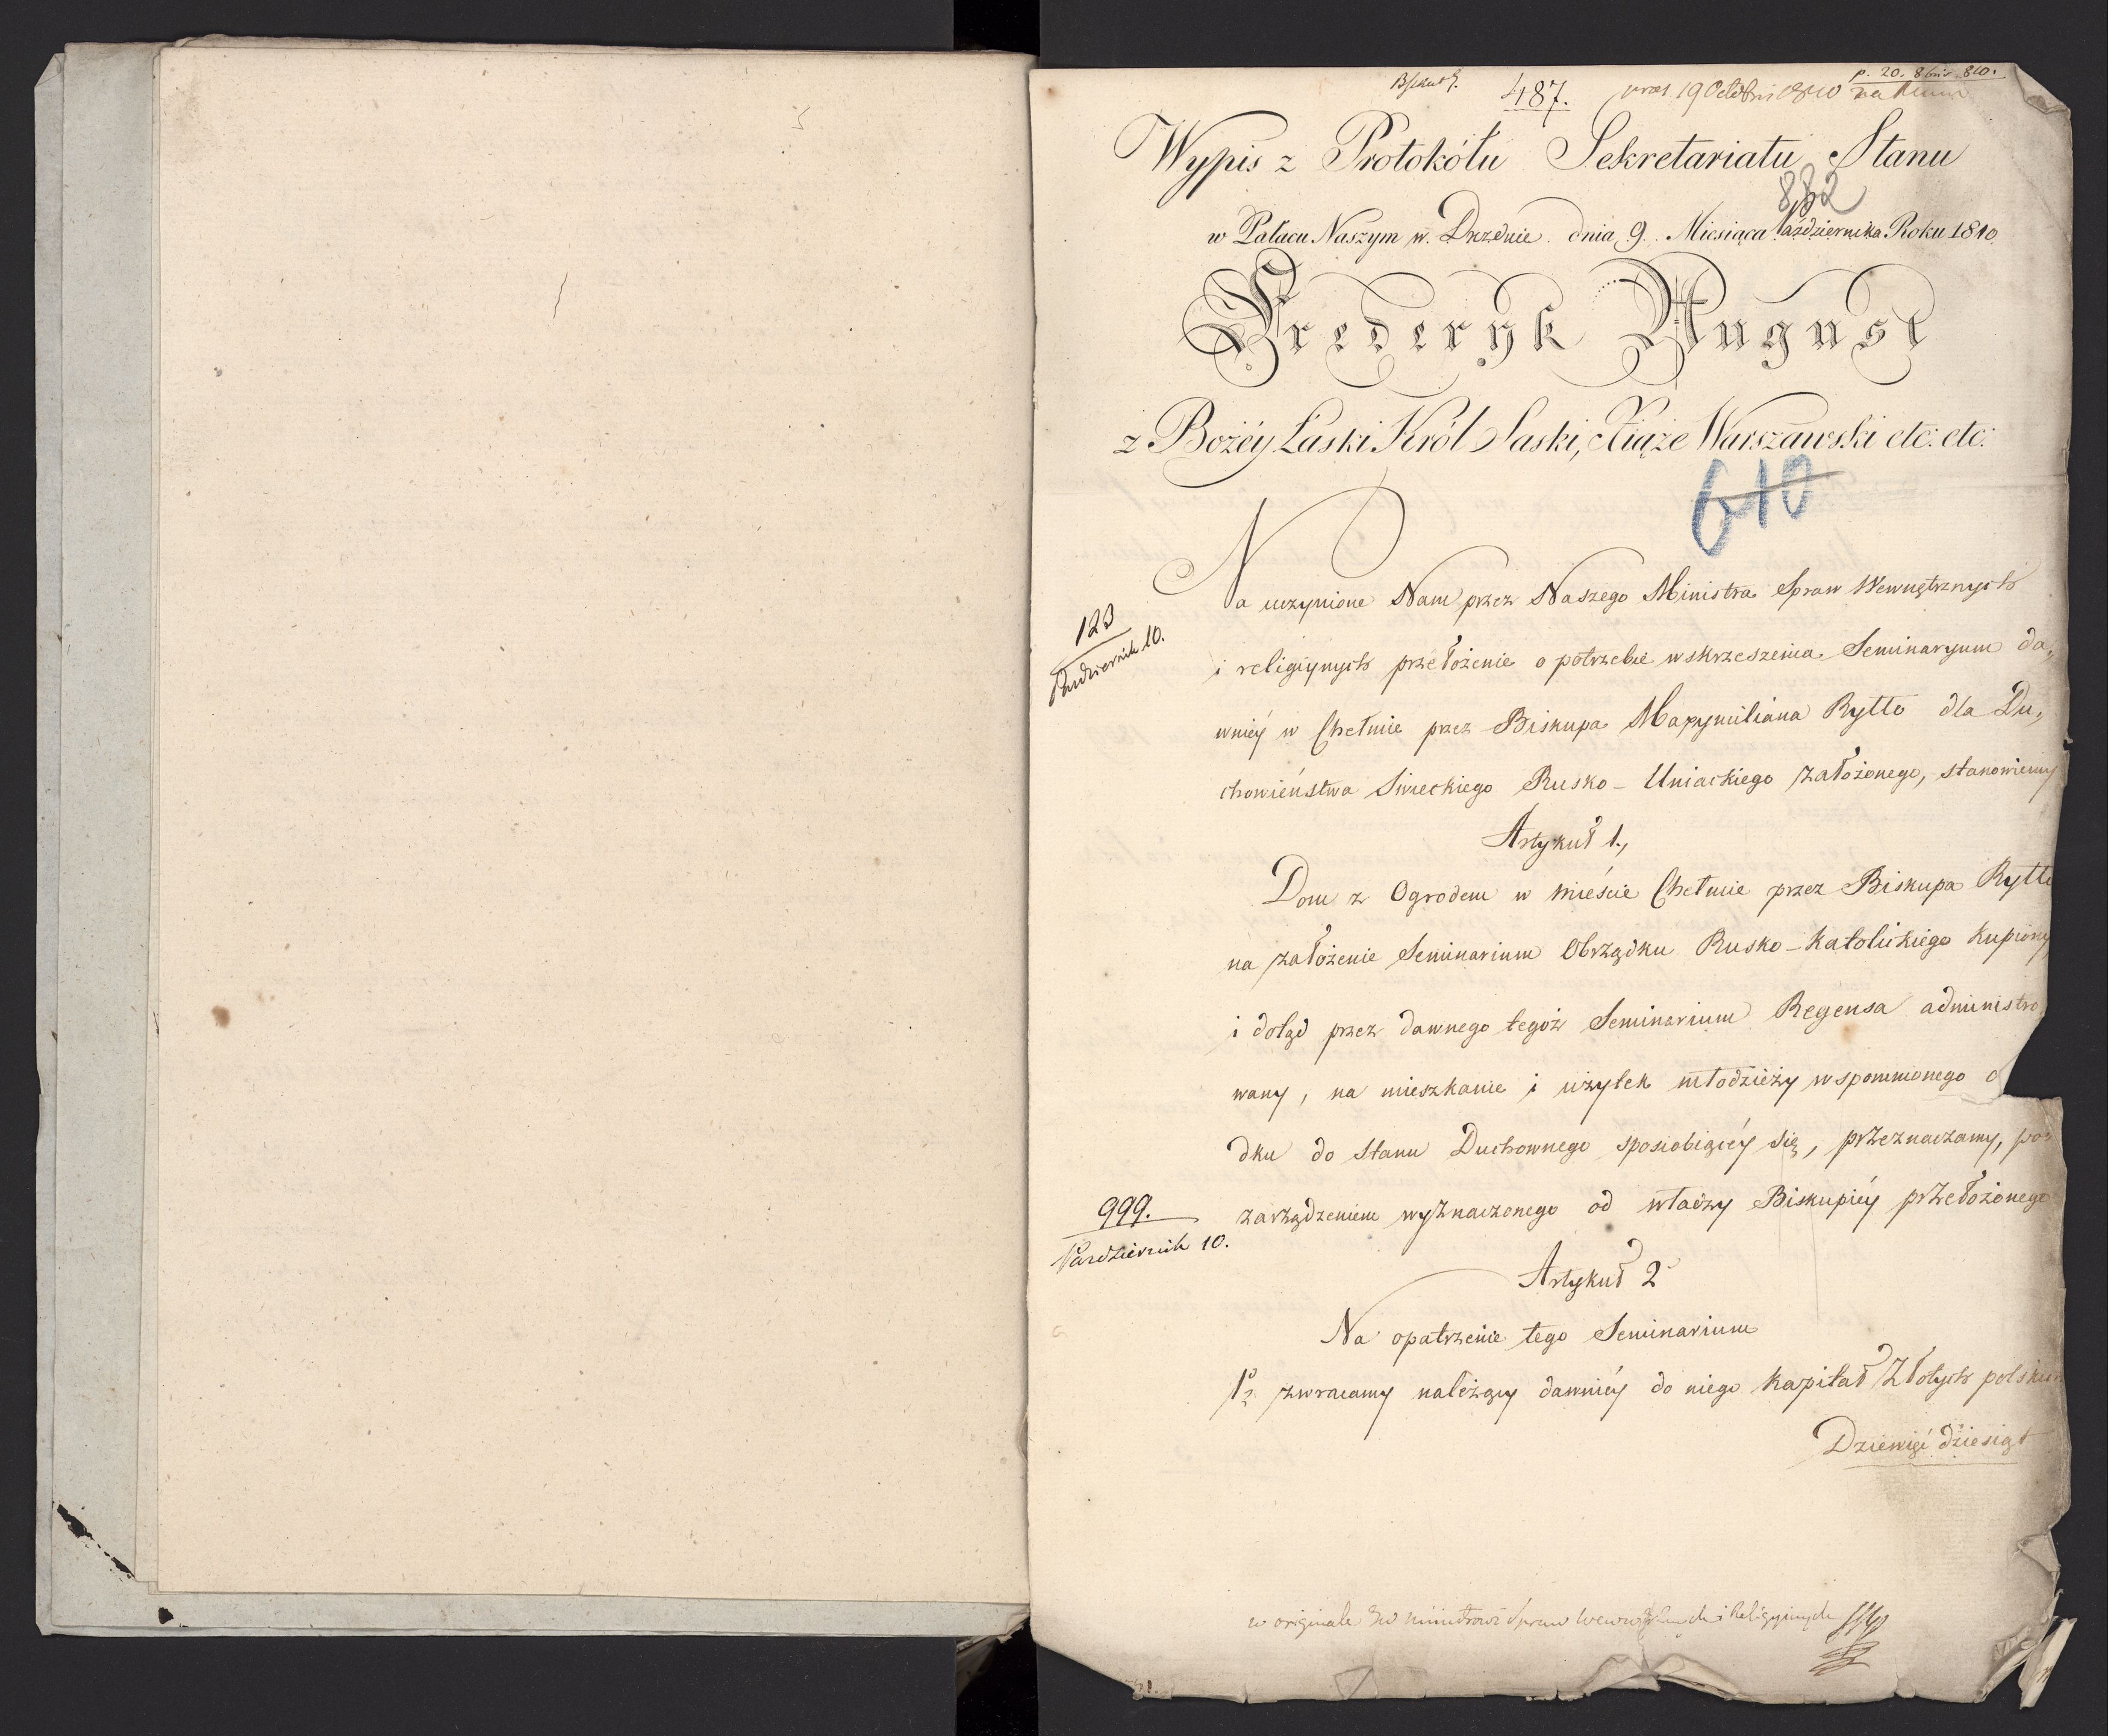 487.
praes 19 Octobris 1810
p. 20. 8bris 810.
Wypis z Protokółu Sekretariatu Stanu
882
w Pałacu Naszym w Dreznie dnia 9. Miesiąca Października Roku 1810
Frederyk August
z Bożéy Łaski Król Saski, Xiąże Warszawski etc: etc:
610
Na uczynione Nam przez Naszego Ministra Spraw Wewnętrznych
123
Pazdziernik 10.
i religiynych przełożenie o potrzebie wskrzeszenia Seminaryum da,
wniéy w Chełmie przez Biskupa Maxymiliana Ryłło dla Du,
chowieństwa Swieckiego Rusko-Uniackiego założonego, stanowiemy
Artykuł 1.,
Dom z Ogrodem w mieście Chełmie przez Biskupa Ryłło
na założenie Seminarium Obrządku Rusko-Katolickiego kupiony
i dotąd przez dawnego tegoż Seminarium Regensa administro
wany, na mieszkanie i użytek młodzieży wspomnionego o
dku do stanu Duchownego sposiobiącéy się, przeznaczamy, pod
zarządzeniem wyznaczonego od władzy Biskupiéy przełożonego
999.
Pazdziernik 10.
Artykuł 2
Na opatrzenie tego Seminarium
1º zwracamy należący dawniéy do niego kapitał Złotych polskich
Dziewięć dziesiąt
w originale JW Ministrowi Spraw Wewnętrznych i Religyinych